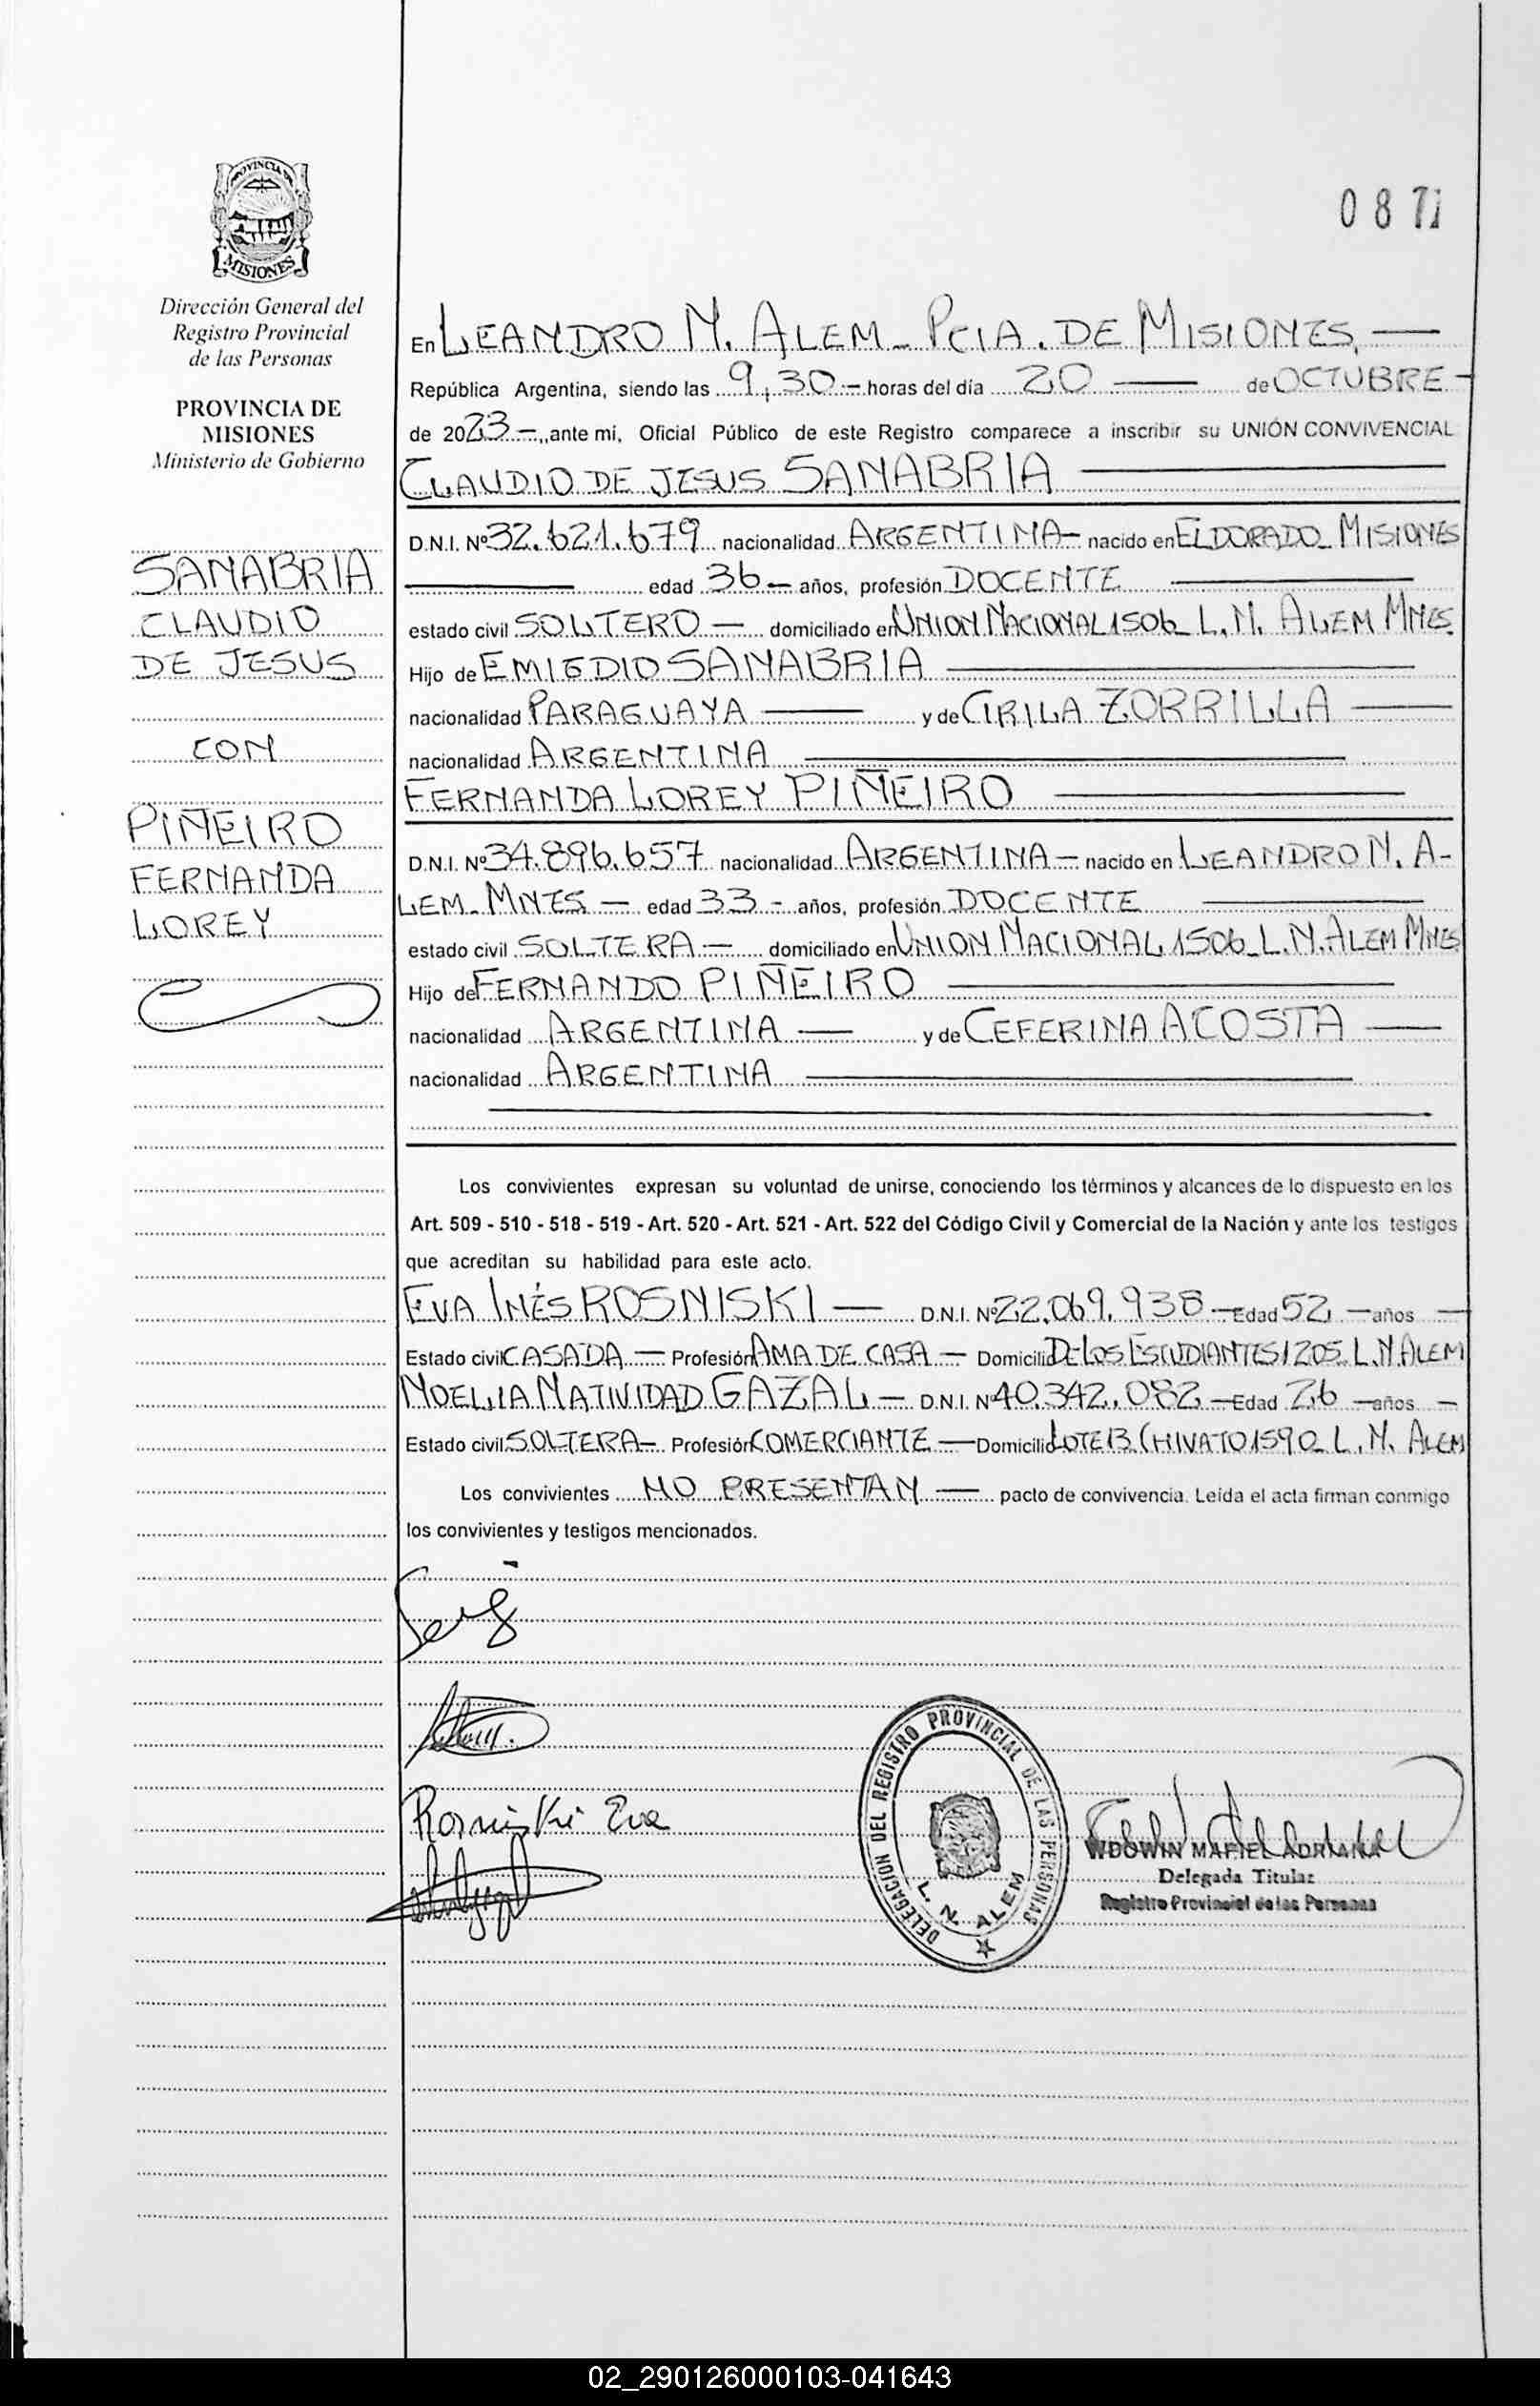 PROVINCIA DE
MISIONES
Dirección General del
Registro Provincial
de las Personas
PROVINCIA DE
MISIONES
Ministerio de Gobierno
SANABRIA
CLAUDIO
DE JESUS
CON
PIÑEIRO
FERNANDA
LOREY
087
En LEANDRO N. ALEM - PCIA. DE MISIONES. —
República Argentina, siendo las 9,30 - horas del día 20 — de OCTUBRE -
de 2023 -, ante mí, Oficial Público de este Registro comparece a inscribir su UNIÓN CONVIVENCIAL
CLAUDIO DE JESUS SANABRIA —
D.N.I. Nº 32.621.679 nacionalidad ARGENTINA - nacido en ELDORADO - MISIONES
— edad 36 - años, profesión DOCENTE —
estado civil SOLTERO — domiciliado en UNION NACIONAL 1506 - L. N. ALEM MNES.
Hijo de EMIGDIO SANABRIA —
nacionalidad PARAGUAYA — y de CIRILA ZORRILLA —
nacionalidad ARGENTINA —
FERNANDA LOREY PIÑEIRO —
D.N.I. Nº 34.896.657 nacionalidad ARGENTINA - nacido en LEANDRO N. A-
LEM - MNES — edad 33 - años, profesión DOCENTE —
estado civil SOLTERA — domiciliado en UNION NACIONAL 1506 - L. N. ALEM MNES
Hijo de FERNANDO PIÑEIRO —
nacionalidad ARGENTINA — y de CEFERINA ACOSTA —
nacionalidad ARGENTINA —
Los convivientes expresan su voluntad de unirse, conociendo los términos y alcances de lo dispuesto en los
Art. 509 - 510 - 518 - 519 - Art. 520 - Art. 521 - Art. 522 del Código Civil y Comercial de la Nación y ante los testigos
que acreditan su habilidad para este acto.
EVA INÉS ROSNISKI — D.N.I. Nº 22.069.938 - Edad 52 - años -
Estado civil CASADA — Profesión AMA DE CASA — Domicilio DE LOS ESTUDIANTES 1205 - L. N. ALEM
NOELIA NATIVIDAD GAZAL — D.N.I. Nº 40.342.082 - Edad 26 - años -
Estado civil SOLTERA - Profesión COMERCIANTE — Domicilio LOTE 13 CHIVATO 1590 - L. N. ALEM
Los convivientes NO PRESENTAN — pacto de convivencia. Leída el acta firman conmigo
los convivientes y testigos mencionados.
Rosniski Eva
DELEGACION DEL REGISTRO PROVINCIAL DE LAS PERSONAS
L. N. ALEM
WDOWIN MARIEL ADRIANA
Delegada Titular
Registro Provincial de las Personas
02_290126000103-041643